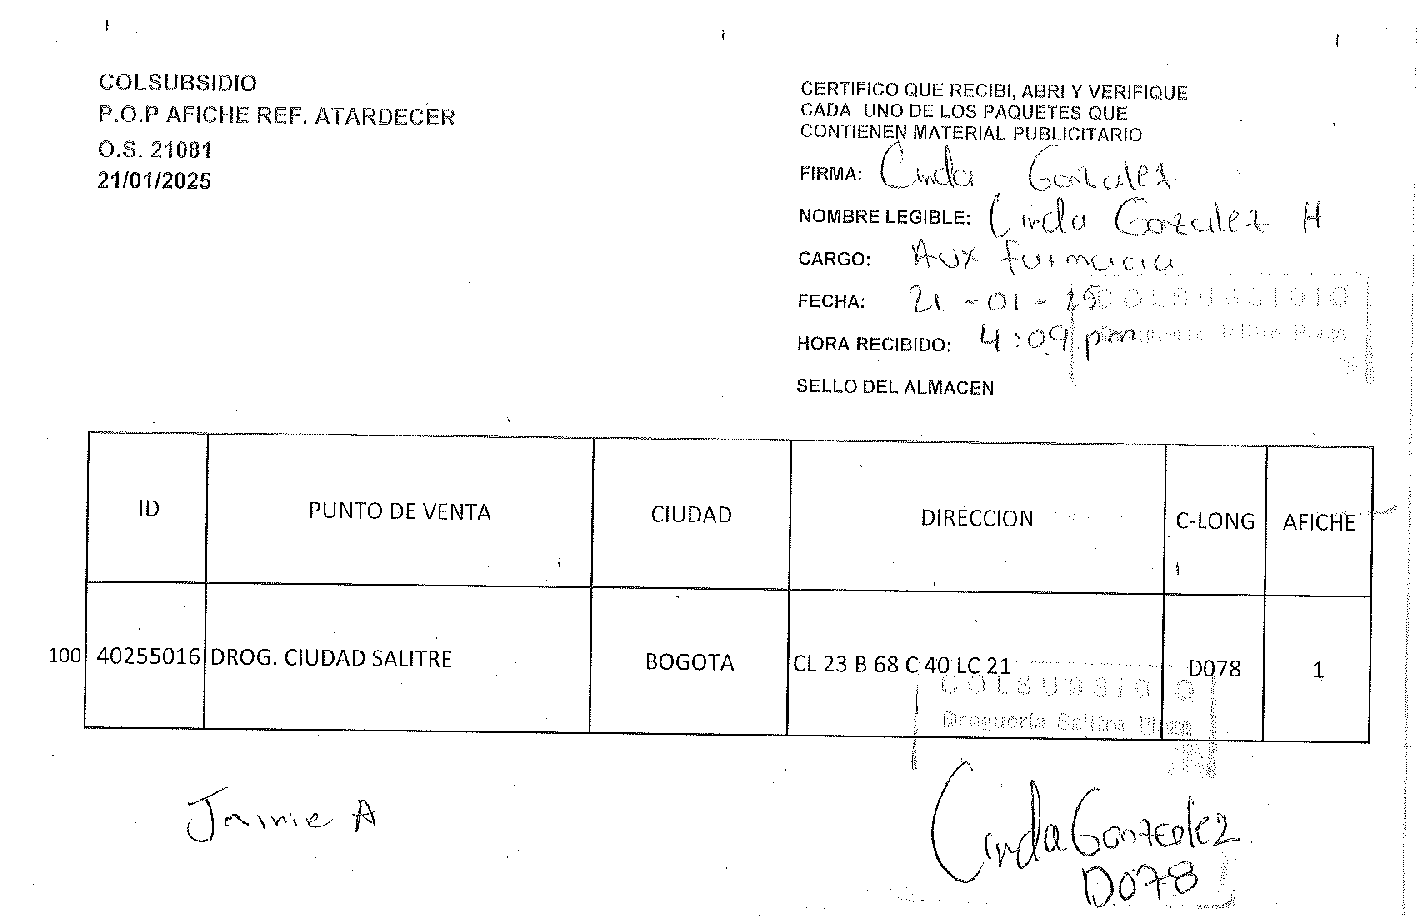 COLSUBSIDIO
P.O.P AFICHE REF. ATARDECER
O.S. 21081
21/01/2025
CERTIFICO QUE RECIBI, ABRI Y VERIFIQUE
CADA UNO DE LOS PAQUETES QUE
CONTIENEN MATERIAL PUBLICITARIO
FIRMA: Cinda Gonzalez
NOMBRE LEGIBLE: Cinda Gozalez H
CARGO: Aux farmacia
FECHA: 21 - 01 - 25
COLSUBSIDIO
HORA RECIBIDO: 4:09 pm
SELLO DEL ALMACEN
ID PUNTO DE VENTA CIUDAD DIRECCION C-LONG AFICHE
100 40255016 DROG. CIUDAD SALITRE BOGOTA CL 23 B 68 C 40 LC 21 D078 1
COLSUBSIDIO
Droguería Salitre Plaza
Jaime A
Cinda Gonzalez
D078